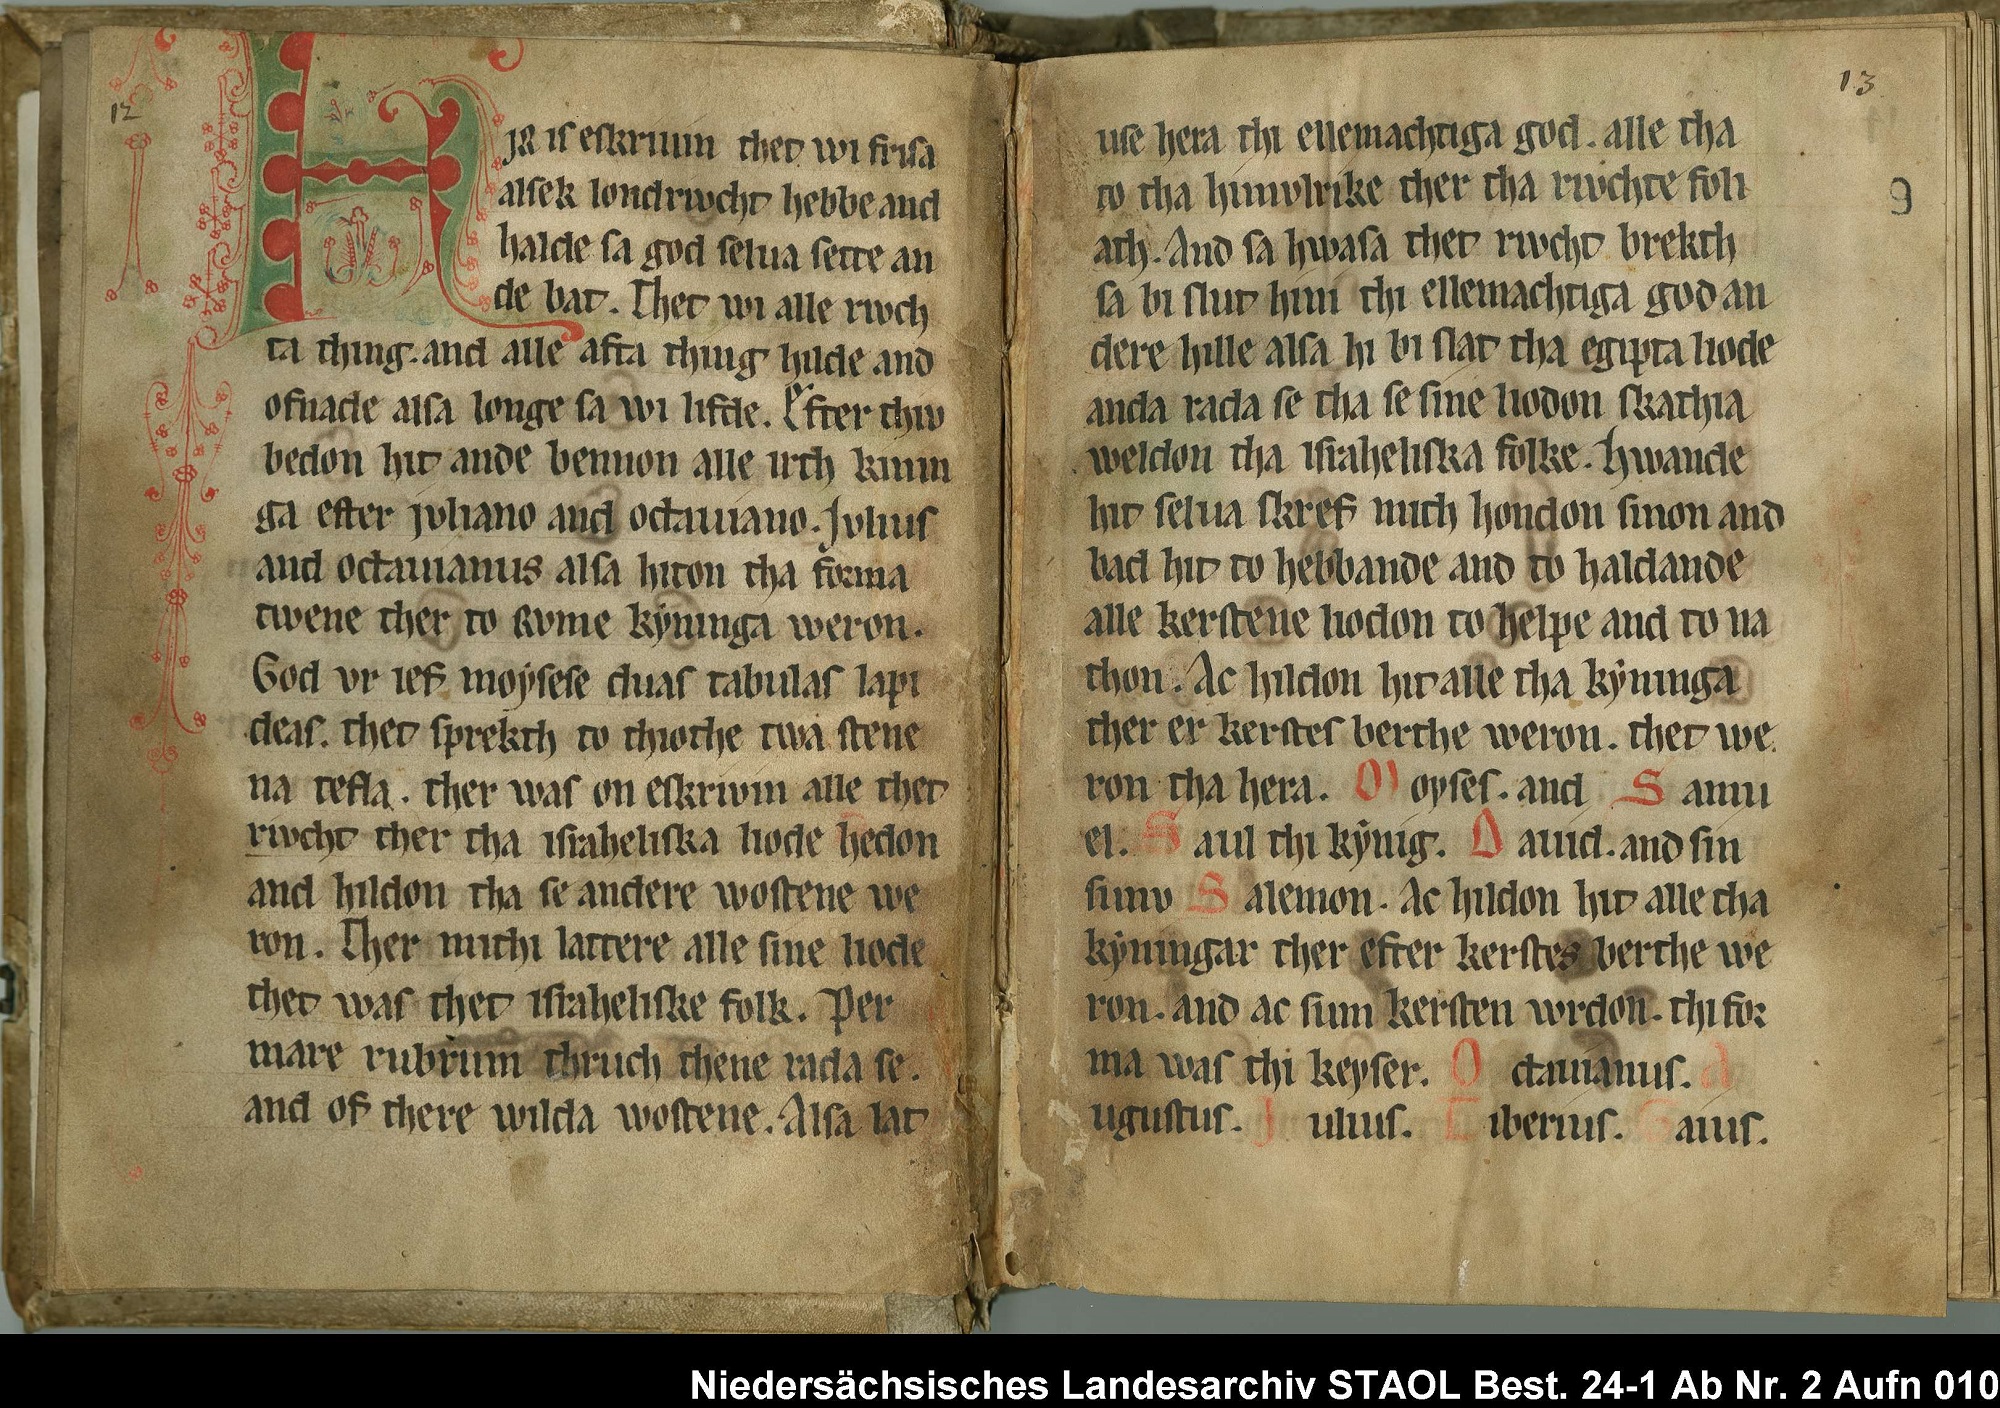 12
Hir is eskriuin thet wi frisa
alsek londriwcht hebbe and
halde sa god selua sette an
de bat. Thet wi alle riwch
ta thing. and alle afta thing hilde and
ofnade alsa longe sa wi lifde. Efter thiv
bedon hit ande bennon alle irth kinin
ga efter jvliano and octauiano. Jvlius
and octauianus alsa hiton tha forma
twene ther to Rvme kyninga weron.
God vr ief moysese duas tabulas lapi
deas. thet sprekth to thiothe twa stene
na tefla. ther was on eskriwin alle thet
riwcht ther tha israheliska liode hedon
and hildon tha se andere wostene we
ron. Ther mithi lattere alle sine liode
thet was thet israheliske folk. Per
mare rubrum thruch thene rada se.
and of there wilda wostene. Alsa lat
13
9
use hera thi ellemachtiga god. alle tha
to tha himvlrike ther tha riwchte foli
ath. And sa hwasa thet riwcht brekth
sa bi slut him thi ellemachtiga god an
dere hille alsa hi bi slat tha egipta liode
anda rada se tha se sine liodon skathia
weldon tha israheliska folke. Hwande
hit selua skref mith hondon sinon and
bad hit to hebbande and to haldande
alle kerstene liodon to helpe and to na
thon. Ac hildon hit alle tha kyninga
ther er kerstes berthe weron. thet we
ron tha hera. Moyses. and Samu
el. Saul thi kynig. Dauid. and sin
sunv Salemon. Ac hildon hit alle tha
kyningar ther efter kerstes berthe we
ron. and ac sum kersten wrdon. thi for
ma was thi keyser. Octauianus. A
ugustus. Julius. Tiberius. Gaius.
Niedersächsisches Landesarchiv STAOL Best. 24-1 Ab Nr. 2 Aufn 010